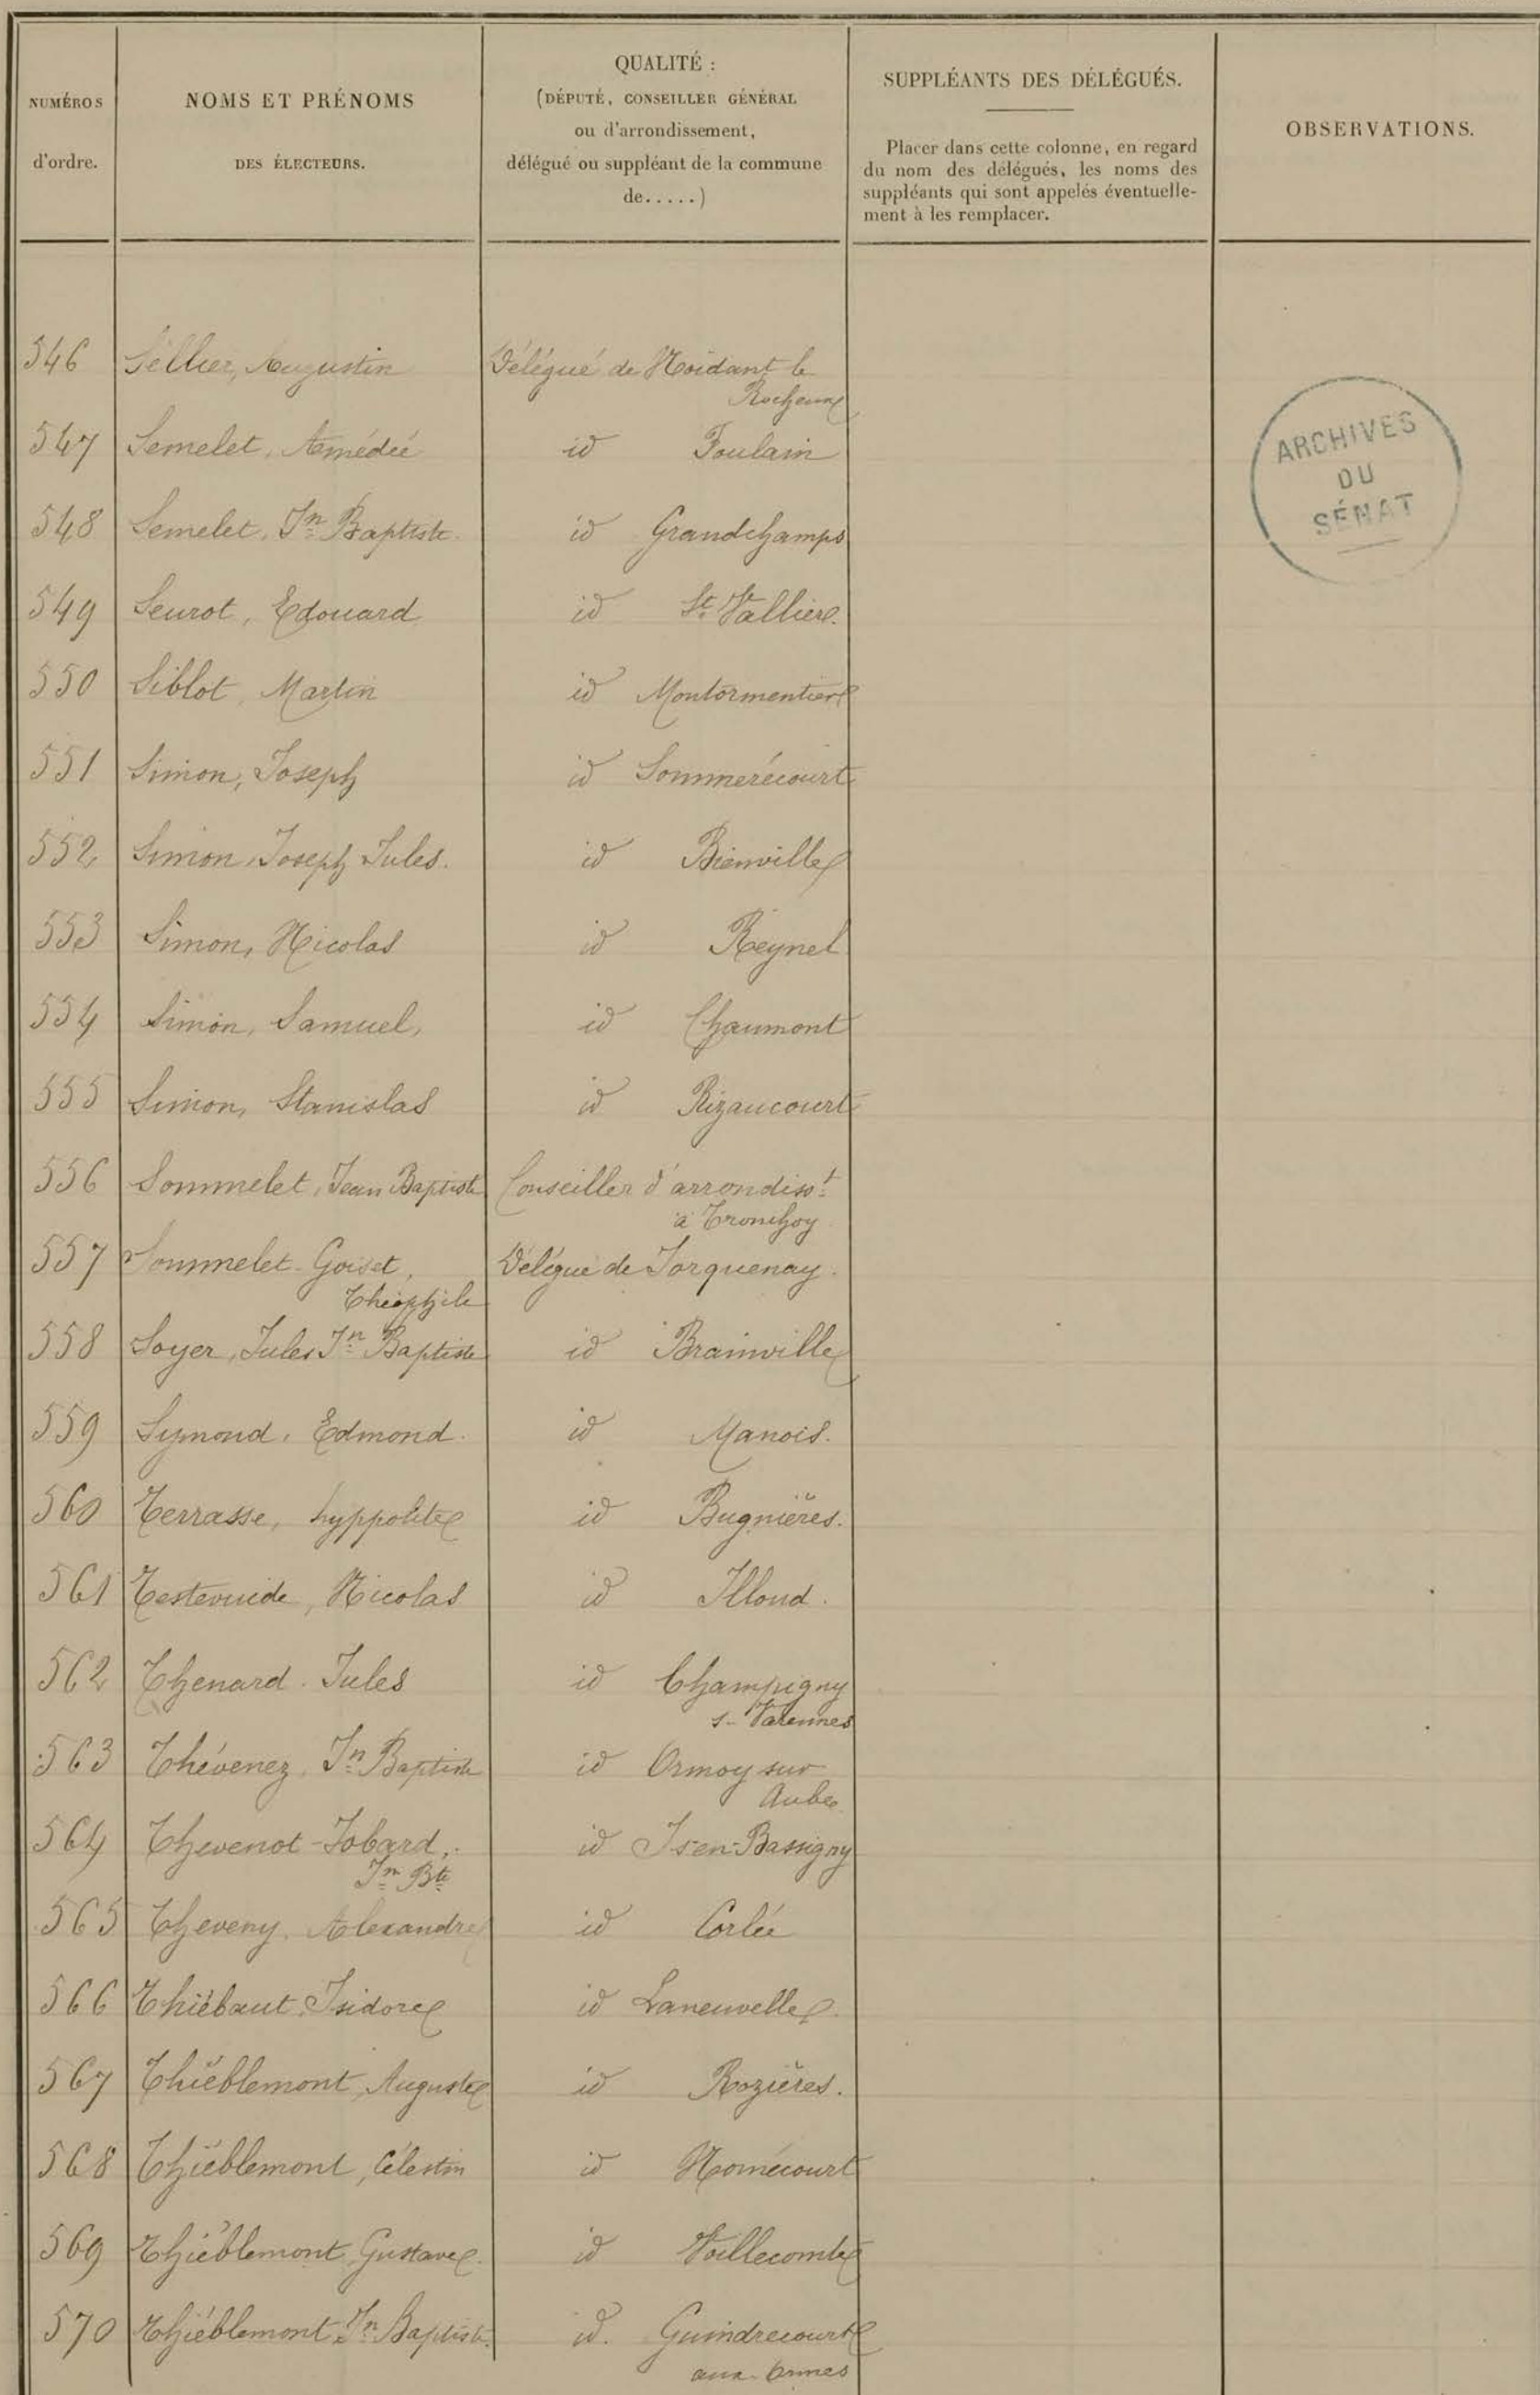 NUMÉROS
d'ordre.
NOMS ET PRÉNOMS
DES ÉLECTEURS.
QUALITÉ :
(DÉPUTÉ, CONSEILLER GÉNÉRAL
ou d'arrondissement,
délégué ou suppléant de la commune
de.....)
SUPPLÉANTS DES DÉLÉGUÉS.
Placer dans cette colonne, en regard
du nom des délégués, les noms des
suppléants qui sont appelés éventuelle-
ment à les remplacer.
OBSERVATIONS.
546 Sellier, Augustin Délégué de Noidant le
Rocheux
547 Semelet, Amédée id Foulain
548 Semelet, Jn Baptiste id Grandchamps
549 Seurot, Edouard id St Vallier
550 Siblot, Martin id Montormentier
551 Simon, Joseph id Sommerécourt
552 Simon, Joseph Jules. id Bienville
553 Simon, Nicolas id Reynel
554 Simon, Samuel, id Chaumont
555 Simon, Stanislas id Rizaucourt
556 Sommelet, Jean Baptiste Conseiller d'arrondisst
à Tronchoy
557 Sommelet-Goiset, Délégué de Jorquenay.
Théophile
558 Soyer, Jules Jn Baptiste id Brainville
559 Symond, Edmond. id Manois.
560 Terrasse, hyppolite id Bugnières.
561 Testevuide, Nicolas id Illoud.
562 Thenard. Jules id Champigny
s- Varennes
563 Thévenez, Jn Baptiste id Ormoy sur
Aube
564 Thevenot-Jobard, id Is-en-Bassigny
Jn Bte
565 Theveny, Alexandre id Corlée
566 Thiébaut, Isidore id Laneuvelle
567 Thiéblemont, Auguste id Rozières.
568 Thiéblemont, Célestin id Nomécourt
569 Thiéblemont, Gustave id Voillecomte
570 Thiéblemont, Jn Baptiste id. Guindrecourt
aux-Ormes
ARCHIVES
DU
SÉNAT